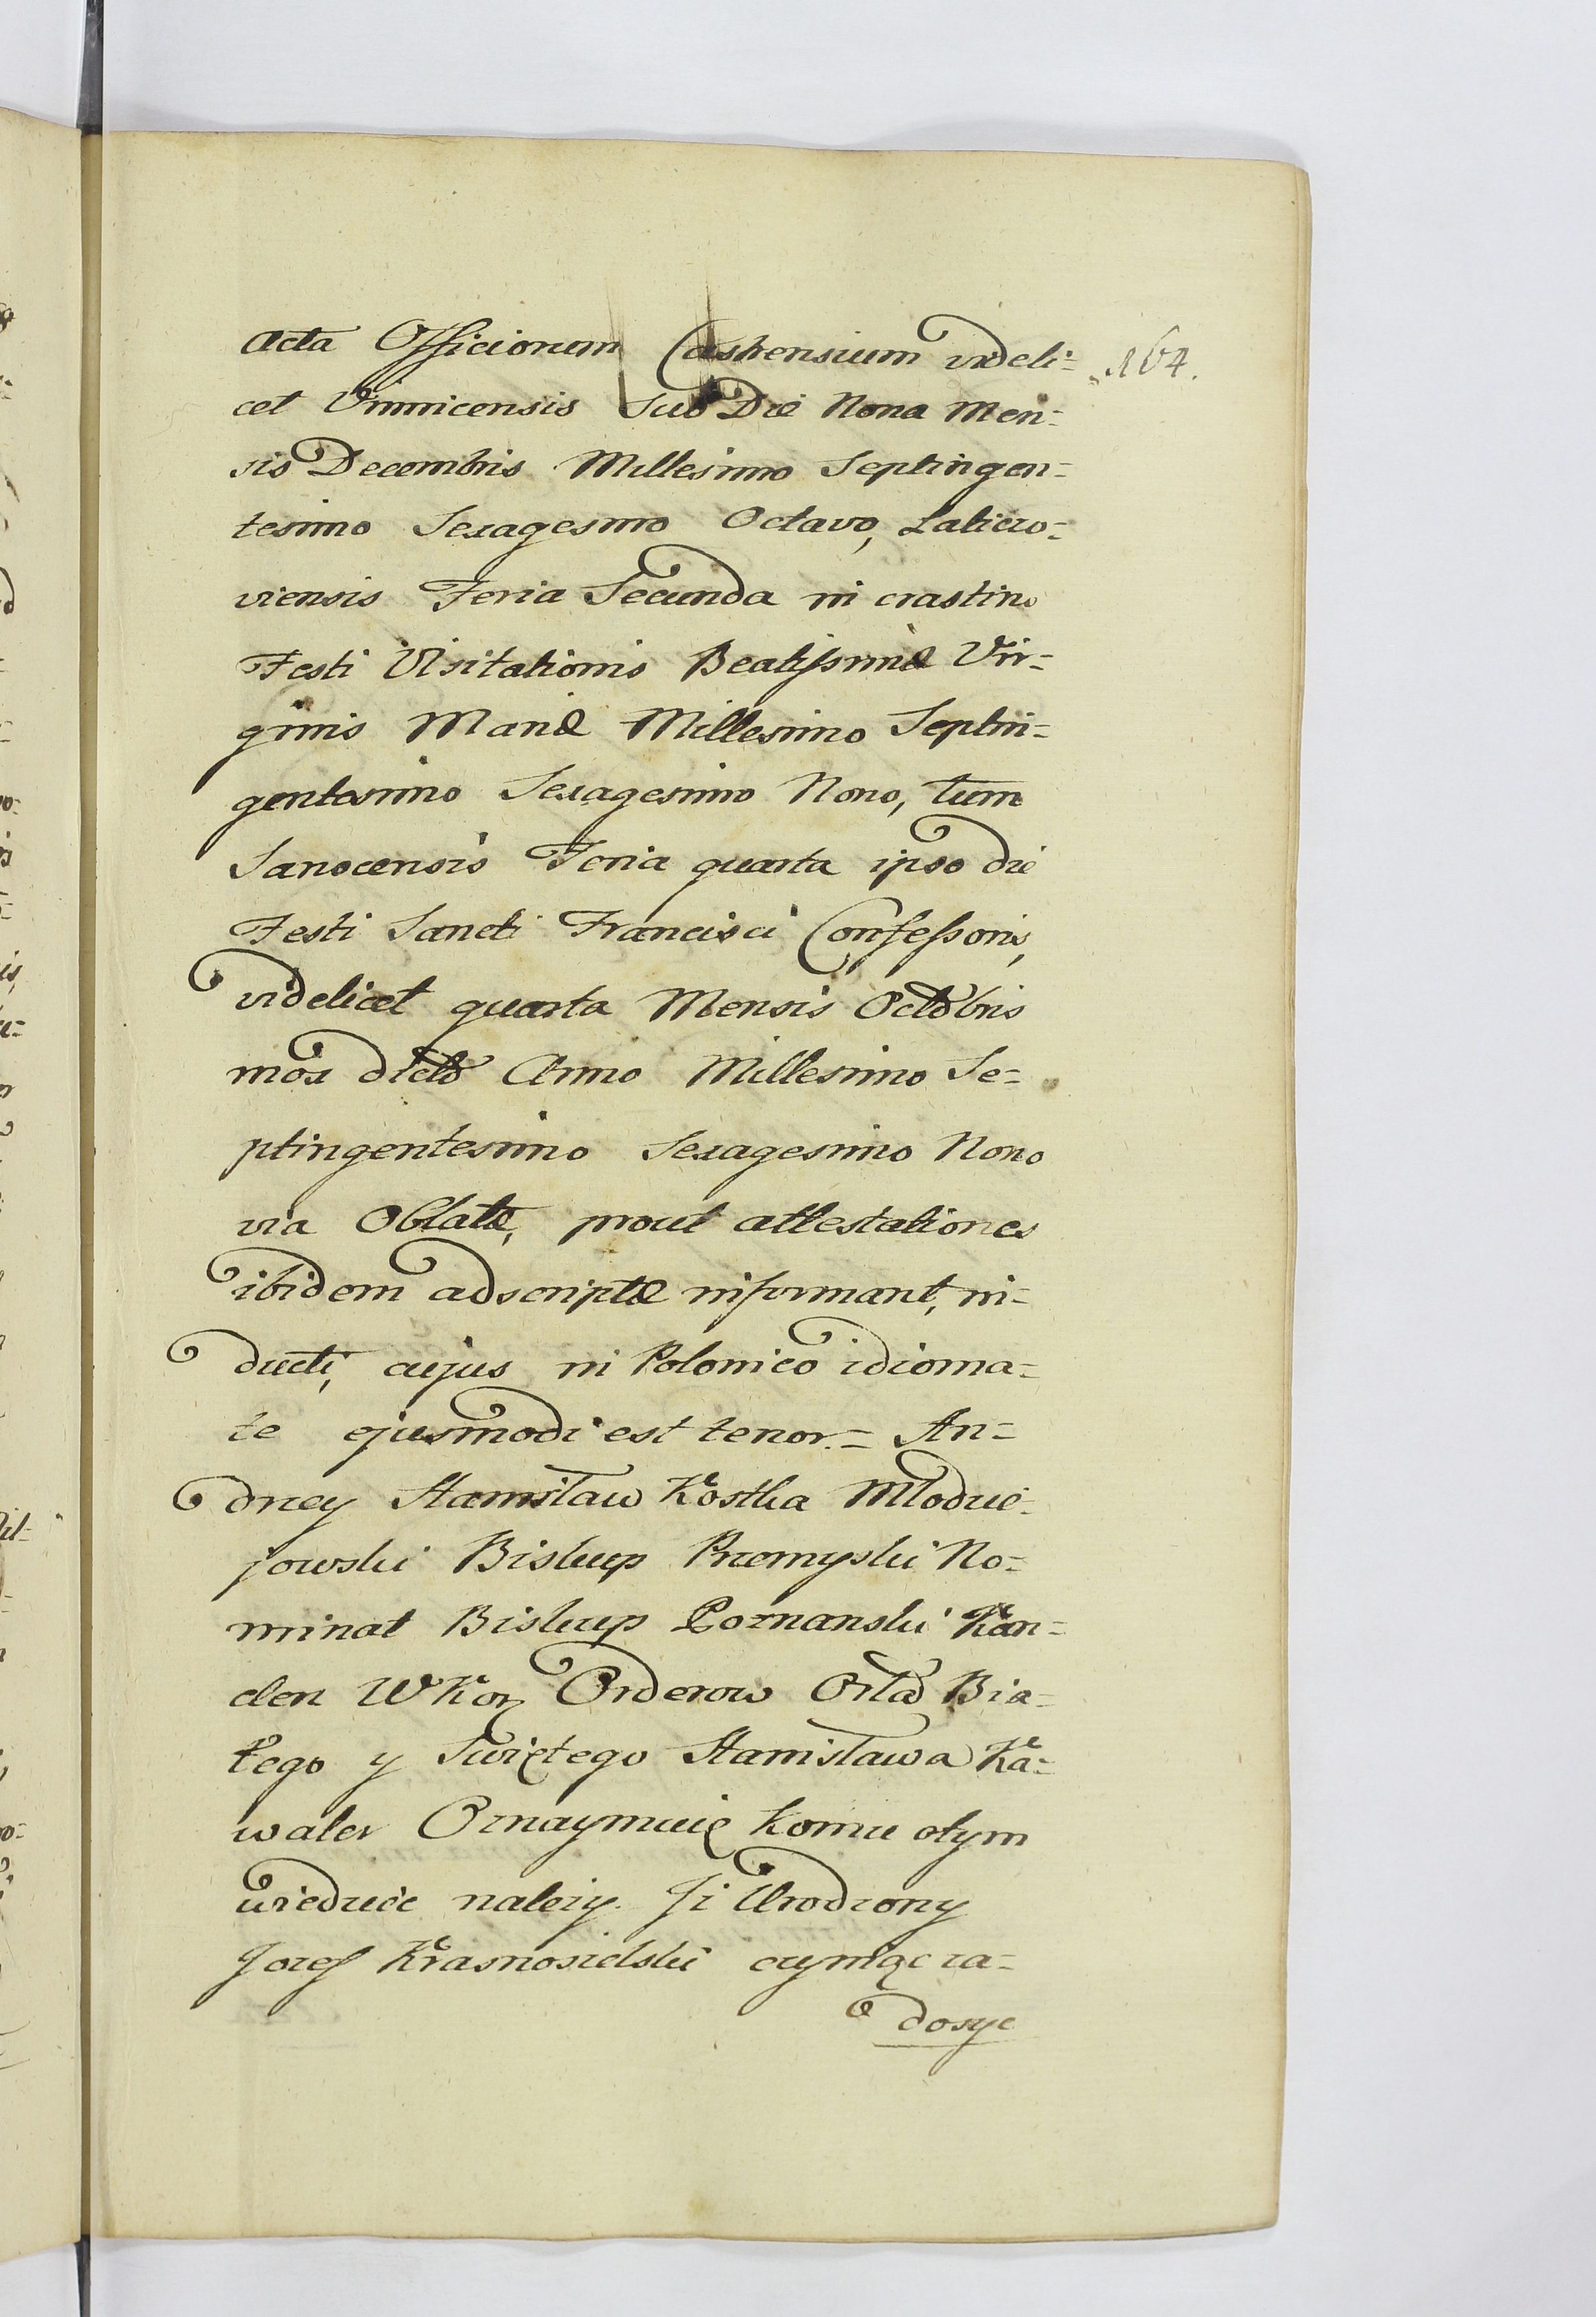 Acta Officiorum Castrensium videli= 164.
cet Vinnicensis Sub Die Nona Men=
sis Decembris Millesimo Septingen=
tesimo Sexagesimo Octavo, Laticzo=
viensis Feria Secunda in crastino
Festi Visitationis Beatissimæ Vir=
ginis Mariæ Millesimo Septin=
gentesimo Sexagesimo Nono, tum
Sanocensis Feria quarta ipso die
Festi Sancti Francisci Confessoris,
videlicet quarta Mensis Octobris
mox dicto Anno Millesimo Se=
ptingentesimo Sexagesimo Nono
via Oblatæ, prout attestationes
ibidem adscriptæ informant, in=
ducti, cujus in Polonico idioma=
te ejusmodi est tenor = An=
drzey Stanisław Kostka Młodzie=
jowski Biskup Przemyski No=
minat Biskup Poznanski Kan=
clerz W Kor Orderow Orła Bia=
łego y Swiętego Stanisława Ka=
waler Oznaymuię komu otym
wiedziec nalezy. Jz Urodzony
Jozef Krasnosielski czyniąc za=
dosyc